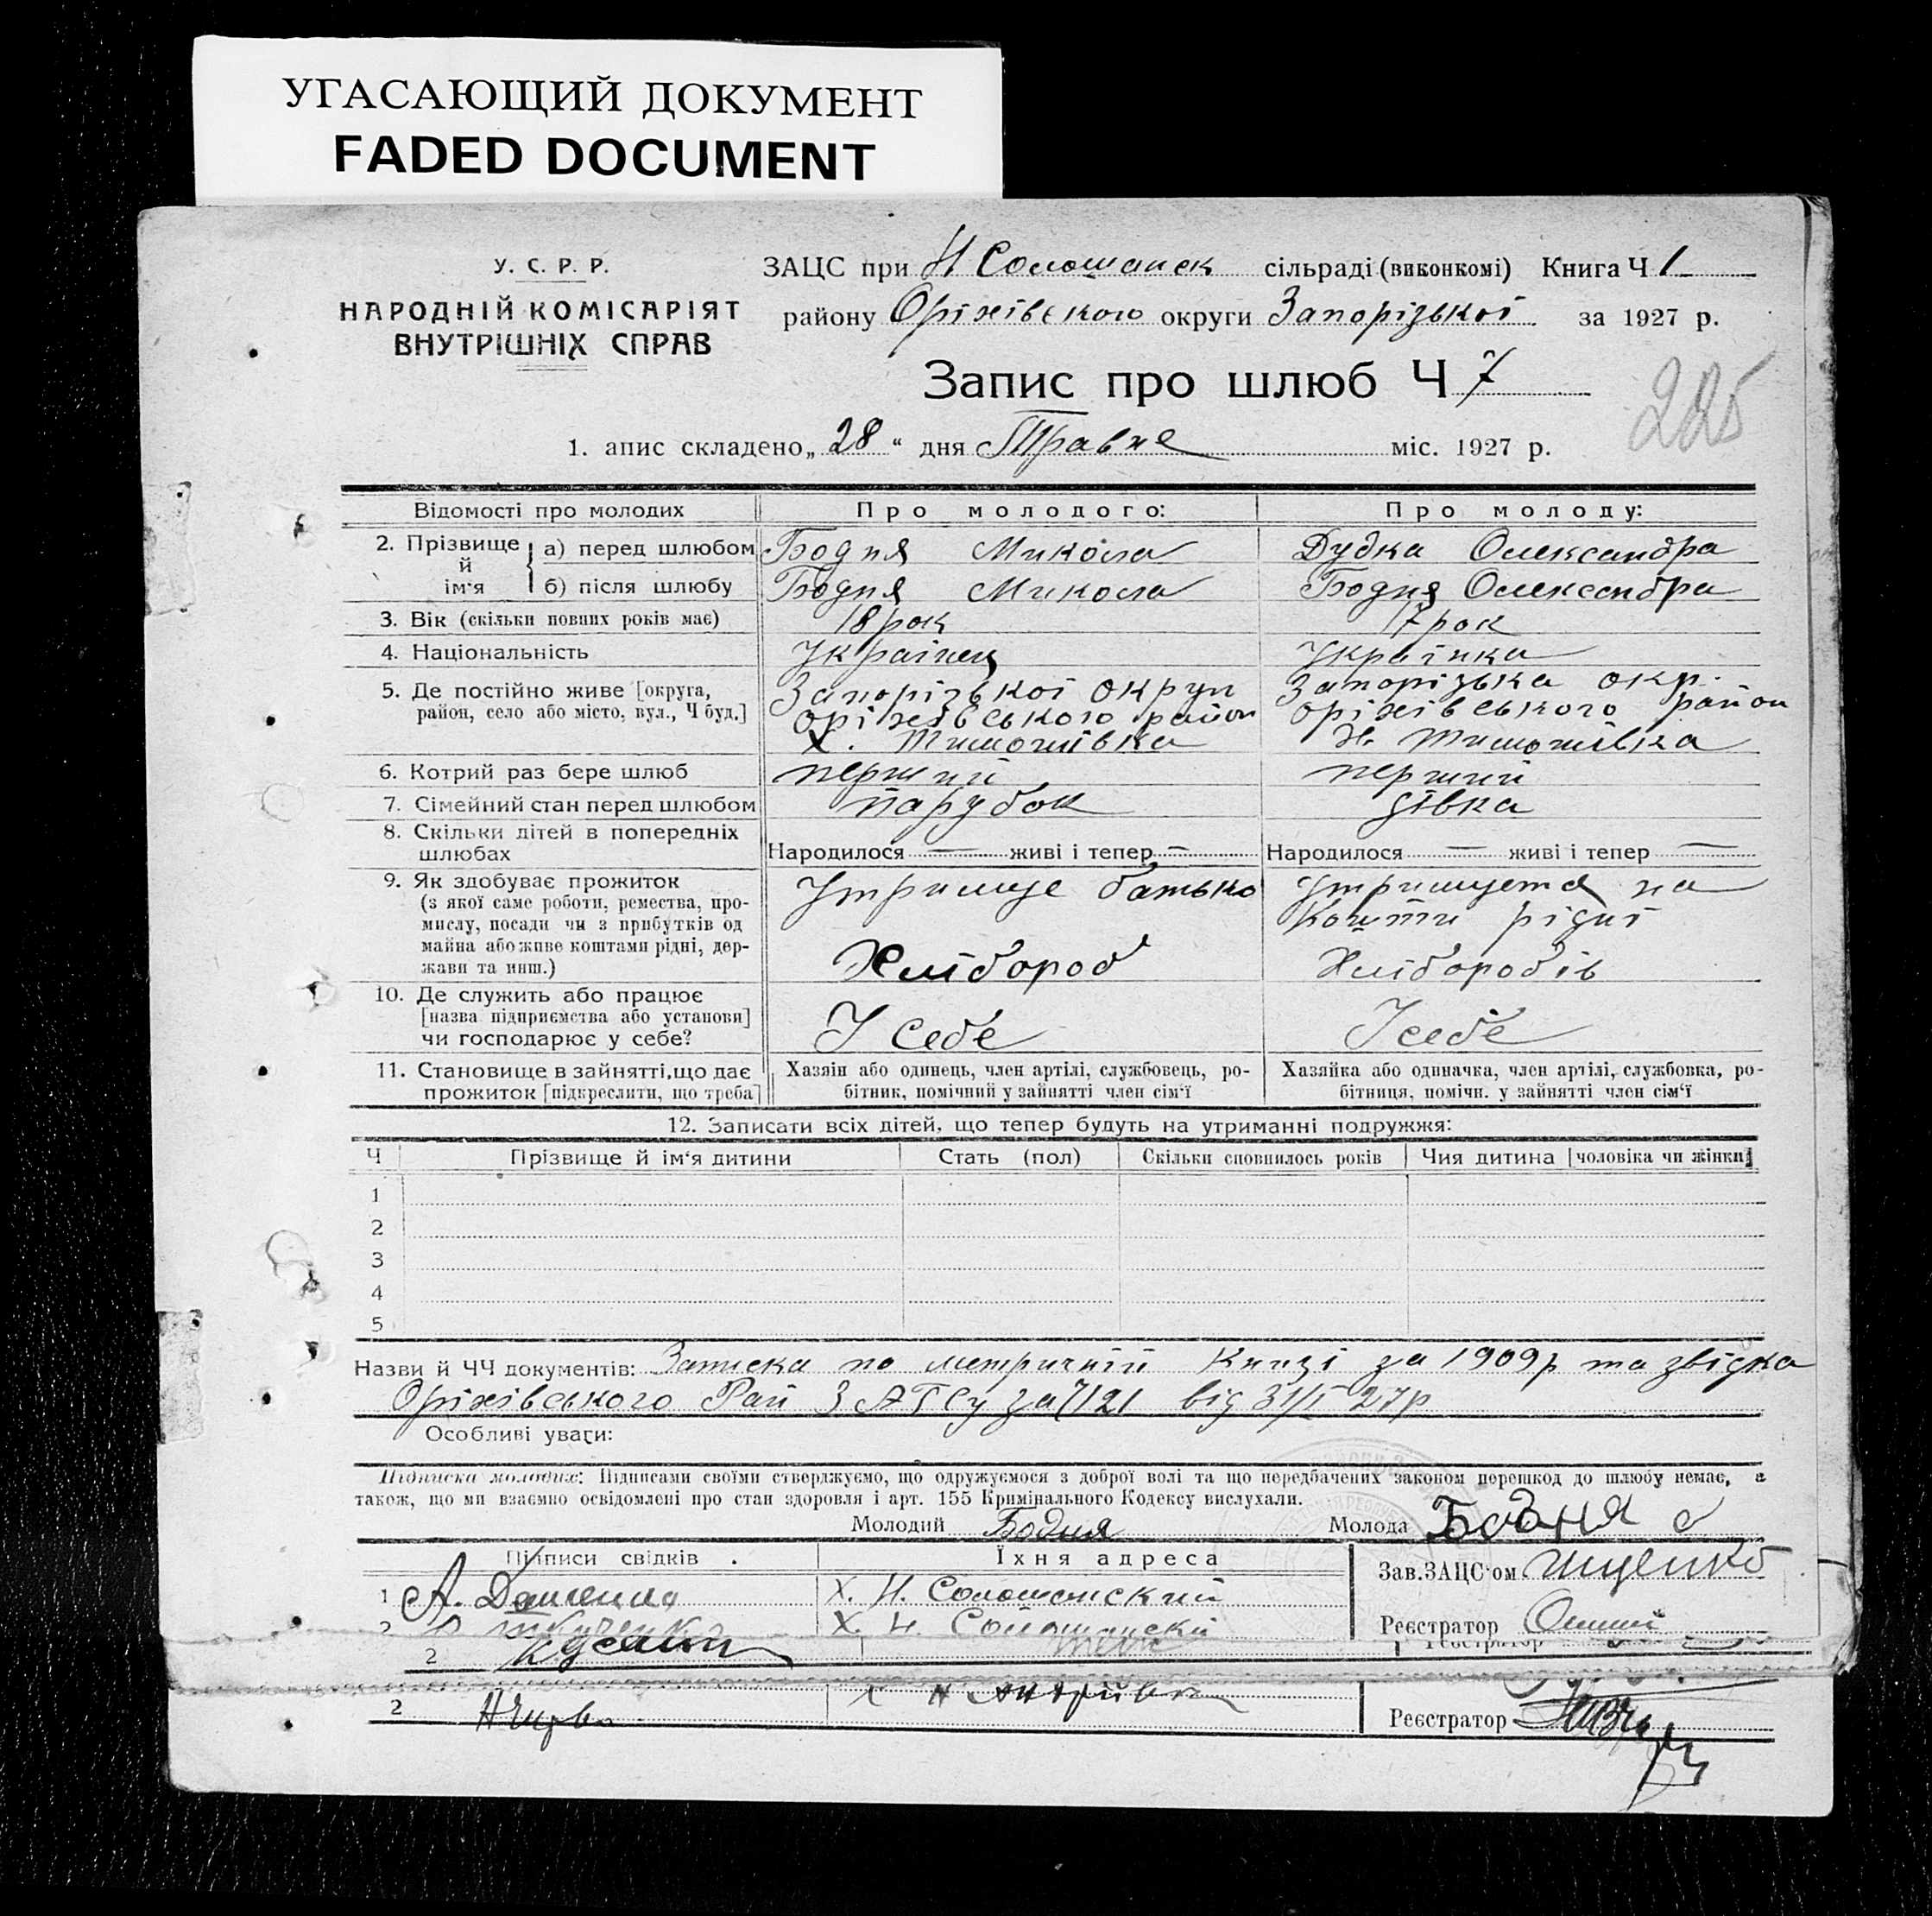 УГАСАЮЩИЙ ДОКУМЕНТ
FADED DOCUMENT
У. С. Р. Р.
НАРОДНІЙ КОМІСАРІЯТ
ВНУТРІШНІХ СПРАВ
ЗАЦС при Н Солошанск сільраді (виконкомі) Книга Ч 1
району Оріхівского округи Запорізької за 1927 р.
Запис про шлюб Ч 7
225
1. апис складено „28“ дня Травня міс. 1927 р.
Відомості про молодих Про молодого: Про молоду:
2. Прізвище й ім‘я а) перед шлюбом Бодня Микола Дудка Олександра
б) після шлюбу Бодня Микола Бодня Олександра
3. Вік (скільки повних років має) 18 рок 17 рок
4. Національність Українец Українка
5. Де постійно живе [округа, Запорізької округи Запорізька окр.
район, село або місто, вул., Ч буд.] Оріхівського район Оріхівського район
Х. Тимошівка Х. Тимошівка
6. Котрий раз бере шлюб перший перший
7. Сімейний стан перед шлюбом парубок дівка
8. Скільки дітей в попередніх
шлюбах Народилося — живі і тепер — Народилося — живі і тепер —
9. Як здобуває прожиток Утримує батько Утримується на
(з якої саме роботи, ремества, про-
мислу, посади чи з прибутків од кошти рідні
майна або живе коштами рідні, дер-
жави та инш.) Хлібороб Хліборобів
10. Де служить або працює
[назва підприємства або установи] У себе У себе
чи господарює у себе?
11. Становище в зайнятті, що дає Хазяїн або одинець, член артілі, службовець, ро- Хазяйка або одиначка, член артілі, службовка, ро-
прожиток [підкреслити, що треба] бітник, помічний у зайнятті член сім‘ї бітниця, помічн. у зайнятті член сім‘ї
12. Записати всіх дітей, що тепер будуть на утриманні подружжя:
Ч Прізвище й ім‘я дитини Стать (пол) Скільки сповнилось років Чия дитина [чоловіка чи жінки]
1
2
3
4
5
Назви й ЧЧ документів: Записка по метричній Книзі за 1909 р та звідка
Оріхівського Рай ЗАГСу за 7121 від 31/I 27р
Особливі уваги:
Підписка молодих: Підписами своїми стверджуємо, що одружуємося з доброї волі та що передбачених законом перешкод до шлюбу немає, а
також, що ми взаємно освідомлені про стан здоровля і арт. 155 Кримінального Кодексу вислухали.
Молодий Бодня Молода Бодня О
Підписи свідків Їхня адреса Зав. ЗАЦС‘ом Ищенко
1 А. Х. Н. Солошанский
2 Ткученко Х. Н. Солошанскі Реєстратор
2 Реєстратор
2 Х Н Андріївка Реєстратор